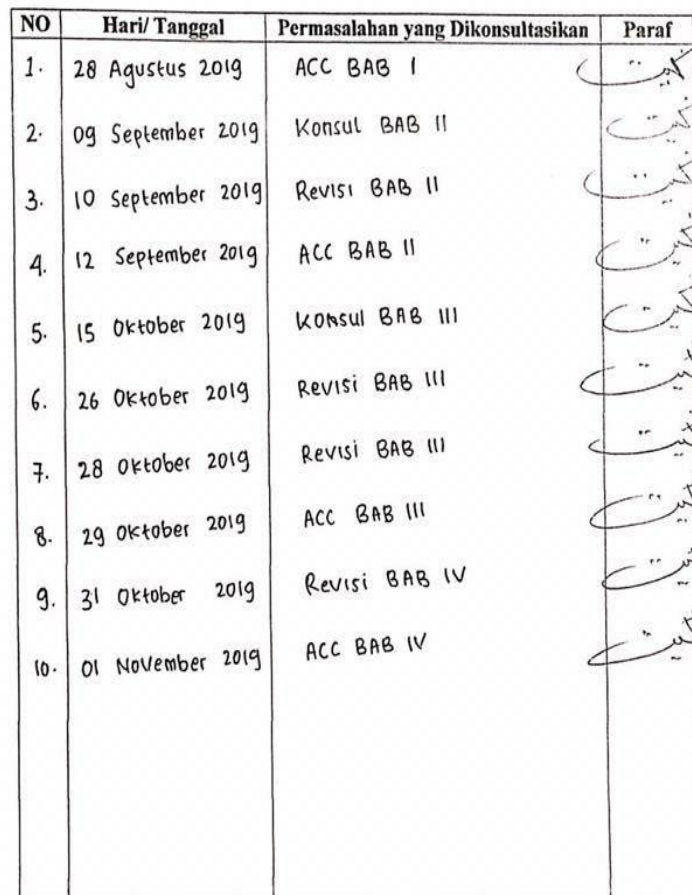 NO Hari/ Tanggal Permasalahan yang Dikonsultasikan Paraf
1. 28 Agustus 2019 ACC BAB I
2. 09 September 2019 Konsul BAB II
3. 10 September 2019 Revisi BAB II
4. 12 September 2019 ACC BAB II
5. 15 Oktober 2019 Konsul BAB III
6. 26 Oktober 2019 Revisi BAB III
7. 28 Oktober 2019 Revisi BAB III
8. 29 Oktober 2019 ACC BAB III
9. 31 Oktober 2019 Revisi BAB IV
10. 01 November 2019 ACC BAB IV